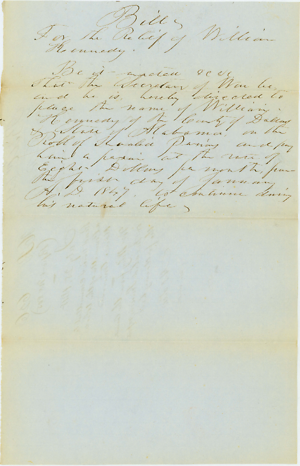 Bill
For the Relief of William
Kennedy.
Be it enacted &c &c
That the Secretary of War be
and he is hereby directed to
place the name of William
Kennedy of the County of Dallas
State of Alabama on the
Roll of Invalid Pensions and pay
him a pension at the rate of
Eight Dollars per month from
the first day of January
A.D. 1847. to continue during
his natural life